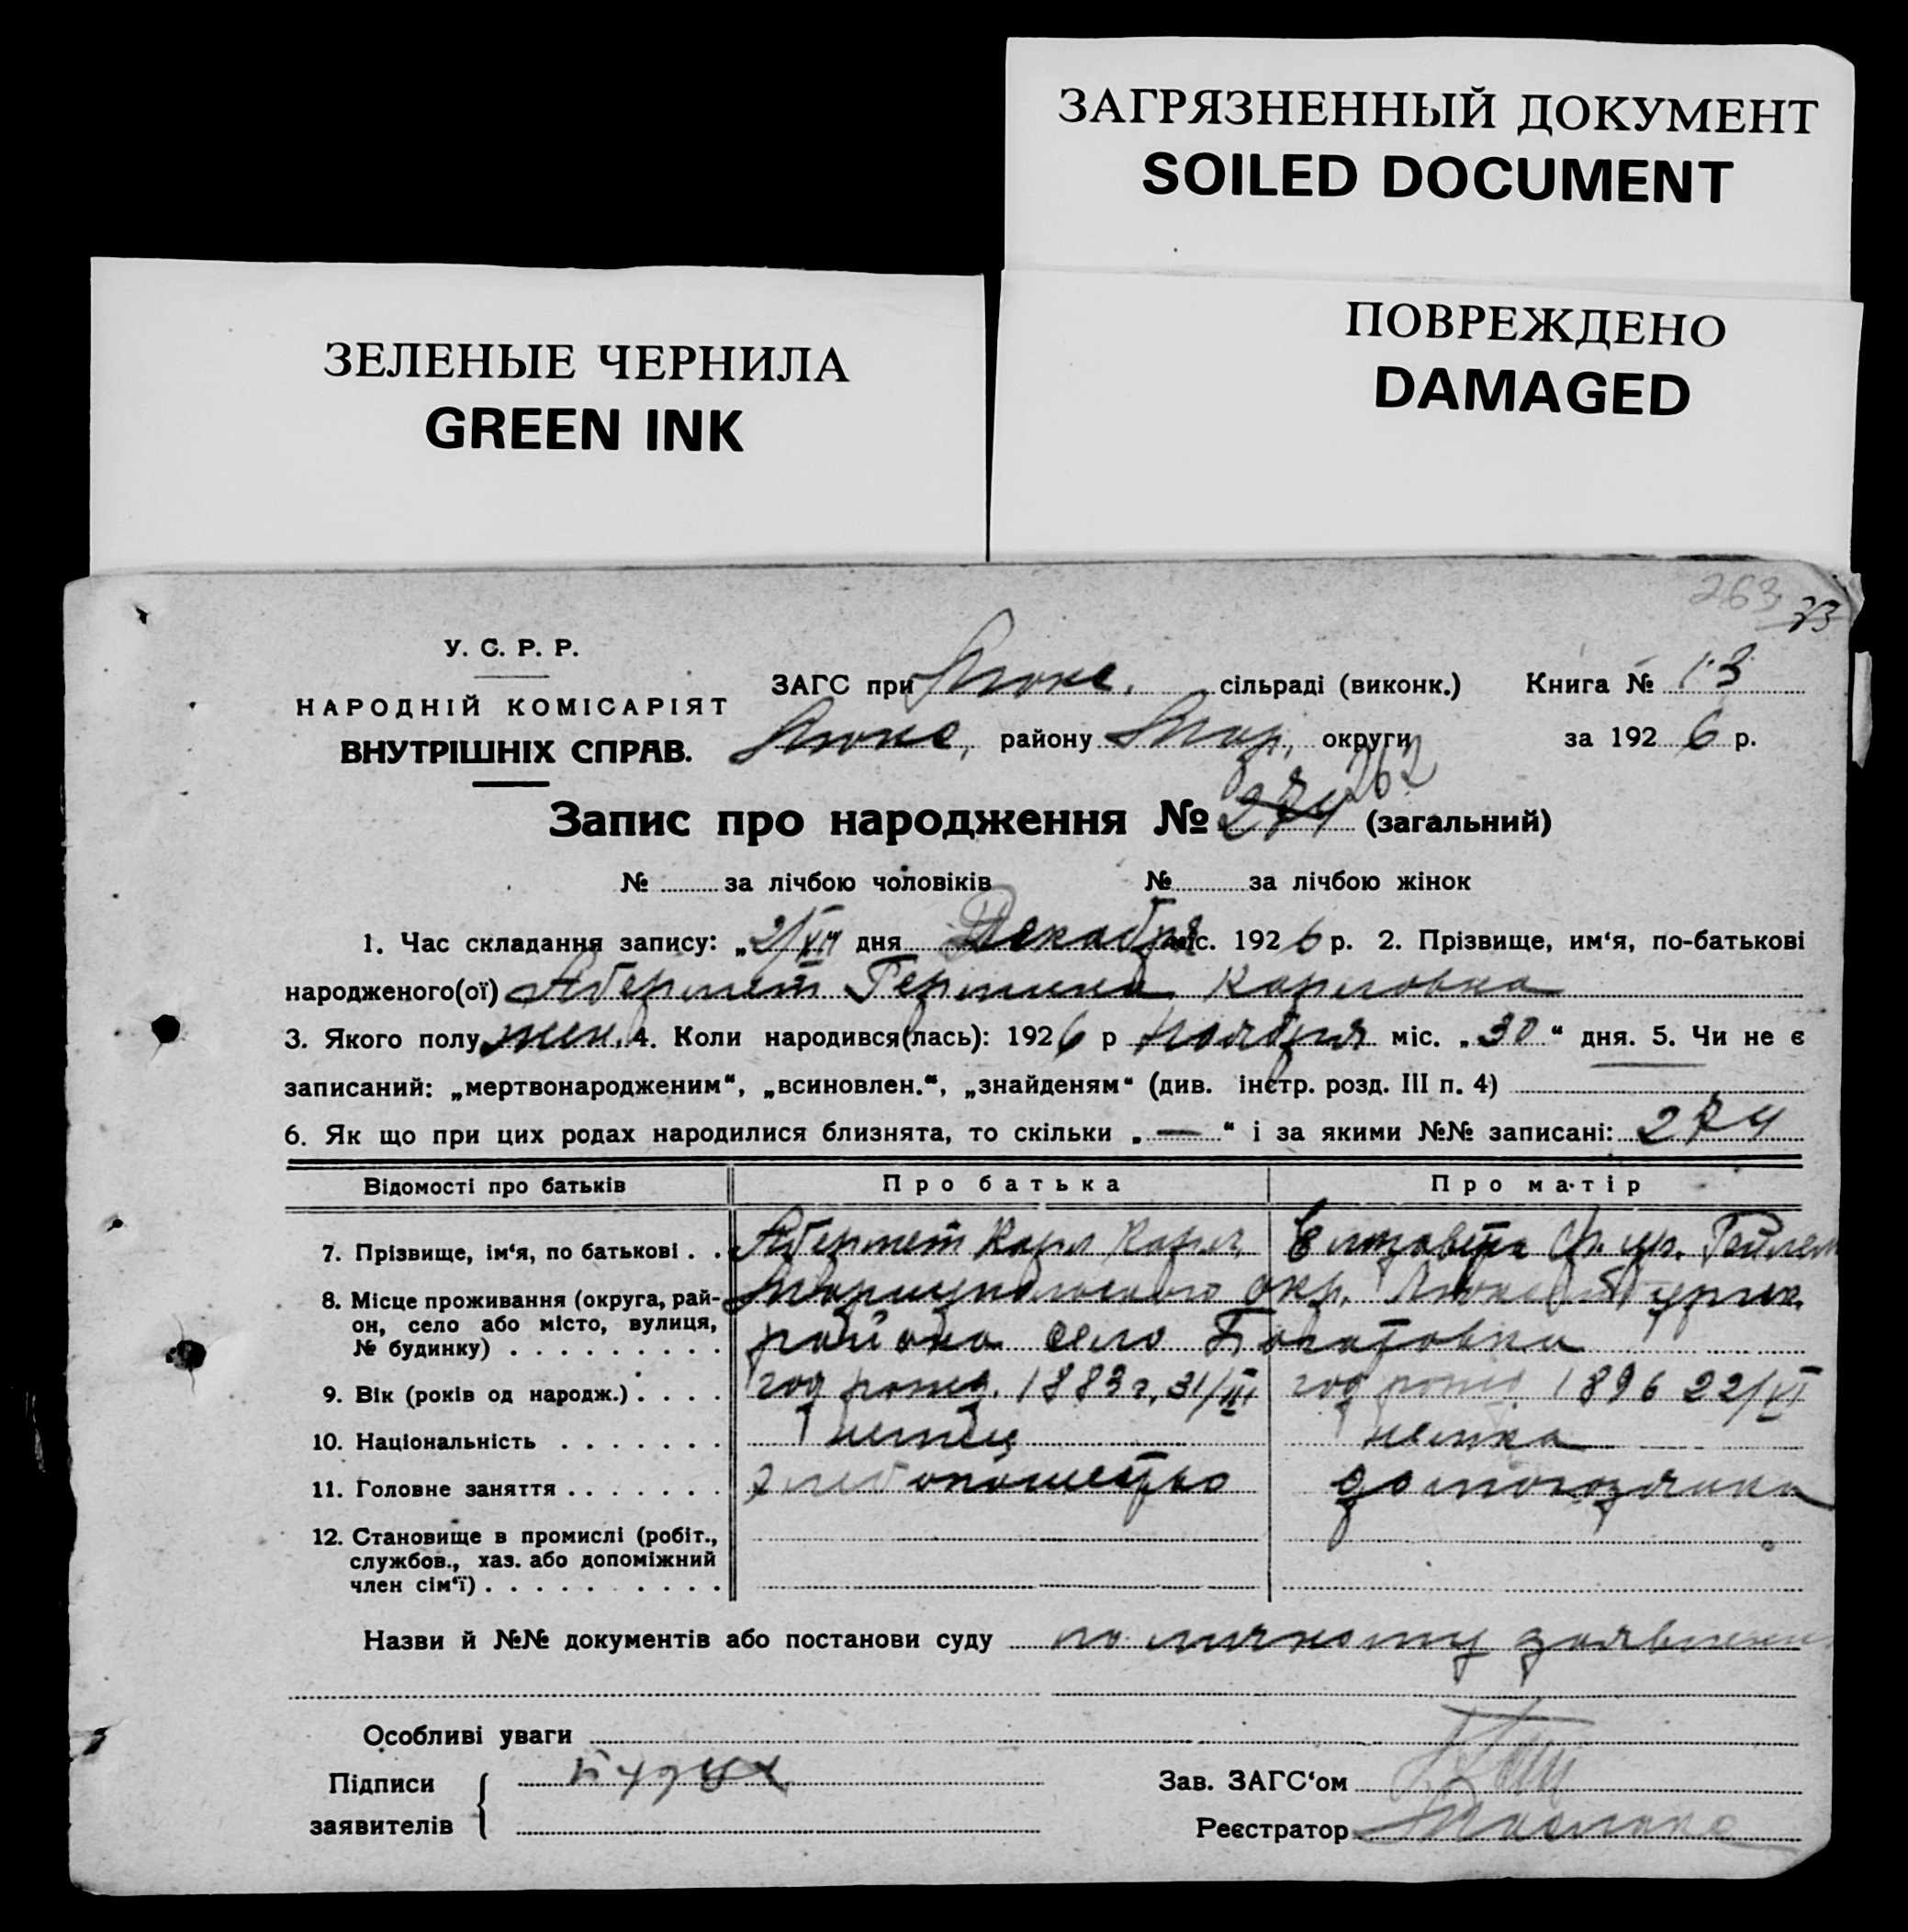 ЗАГРЯЗНЕННЫЙ ДОКУМЕНТ
SOILED DOCUMENT
ПОВРЕЖДЕНО
DAMAGED
ЗЕЛЕНЫЕ ЧЕРНИЛА
GREEN INK
263
У. С. Р. Р.
НАРОДНІЙ КОМІСАРІЯТ
ВНУТРІШНІХ СПРАВ.
ЗАГС при Люкс. сільраді (виконк.) Книга № 13
Люкс, району Мар, округи за 1926 р.
Запис про народження № 274 262 (загальний)
№ за лічбою чоловіків № за лічбою жінок
1. Час складання запису: „2/XII дня Декабря міс. 1926 р. 2. Прізвище, им‘я, по-батькові
народженого(ої) Абермет Гермина Карловна
3. Якого полу жен. 4. Коли народився(лась): 1926 р Ноября міс. „30“ дня. 5. Чи не є
записаний: „мертвонародженим“, „всиновлен.“, „знайденям“ (див. інстр. розд. III п. 4)
6. Як що при цих родах народилися близнята, то скільки „—“ і за якими №№ записані: 274
Відомості про батьків Про батька Про матір
7. Прізвище, ім‘я, по батькові . . Абермет Карл Карл. Елизавета ур.
8. Місце проживання (округа, рай- Мариупольского окр. Люксембургск.
он, село або місто, вулиця,
№ будинку) района село
9. Вік (років од народж.) год рожд. 1883 г. 31/III год рожд 1896 22/VI
10. Національність немец немка
11. Головне заняття хлебопашество домохозяйка
12. Становище в промислі (робіт.,
службов., хаз. або допоміжний
член сім‘ї)
Назви й №№ документів або постанови суду по личному заявлению
Особливі уваги
Підписи
заявителів
Зав. ЗАГС‘ом
Реєстратор